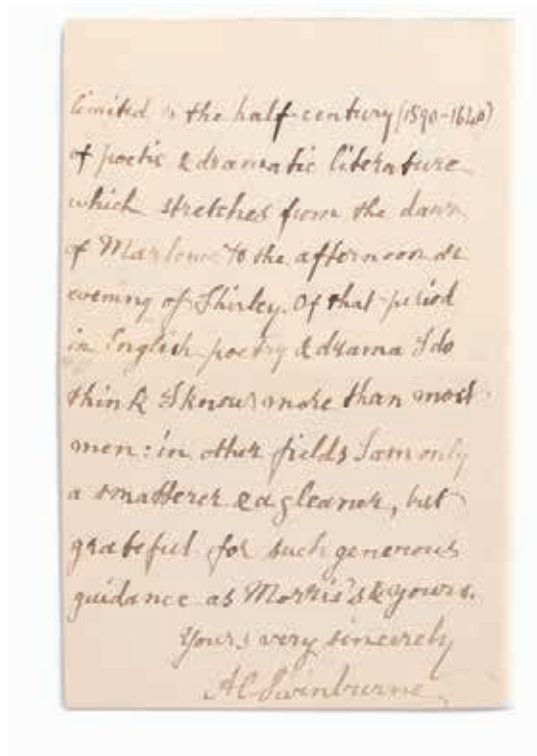 limited to the half-century (1590-1640)
of poetic & dramatic literature
which stretches from the dawn
of Marlowe to the afternoon or
evening of Shirley. Of that period
in English poetry & drama I do
think I know more than most
men: in other fields I am only
a smatterer & a gleaner, but
grateful for such generous
guidance as Morris's & yours.
Yours very sincerely
A C Swinburne